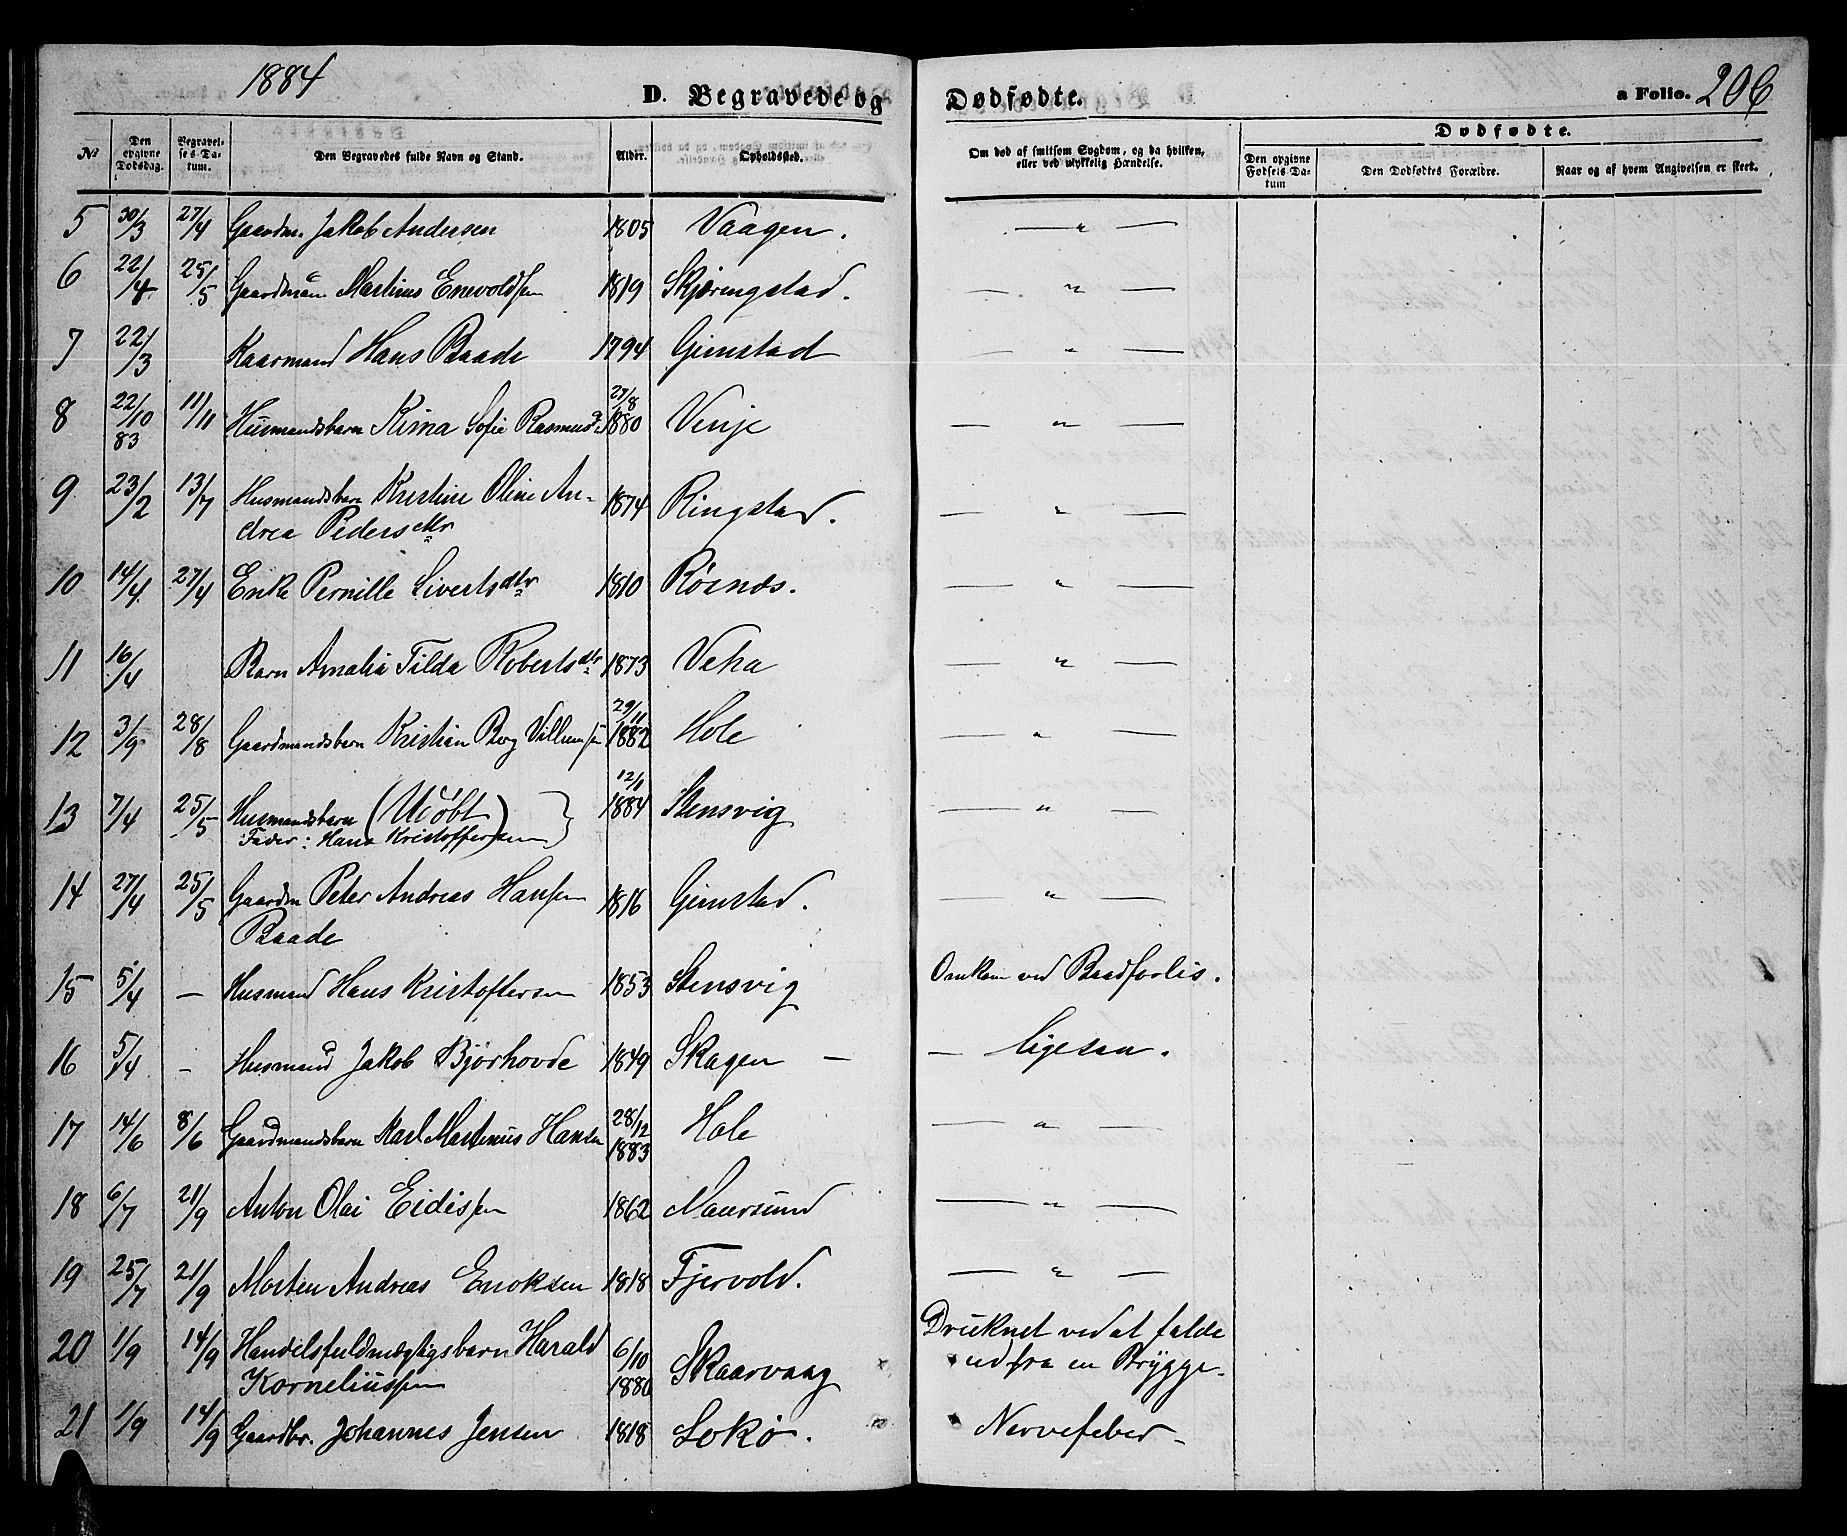 1884
D. Begravede og Dødfødte.
a Folio. 206
№ | Den opgivne Dødsdag. | Begravelses-Datum. | Den Begravedes fulde Navn og Stand. | Alder. | Opholdssted. | Om død af smitsom Sygdom, og da hvilken, eller ved ulykkelig Hændelse. | Dødfødte. | Den opgivne Fødsels Datum | Den Dødfødtes Forældre. | Naar og af hvem Angivelsen er skeet.
5 30/3 27/4 Gaardm. Jakob Andersen 1805 Vaagen. — " —
6 22/4 25/5 Gaardman Martinus Enevoldsen 1819 Skjæringstad. — " —
7 22/3 Kaarmand Hans Baade 1794 Gimstad — " —
8 22/10 83 11/11 Husmandsbarn Kima Sofie Rasmusd. 27/8 1880 Vinje — " —
9 23/2 13/7 Husmandsbarn Kristine Oline An-
drea Pedersdtr 1874 Ringstad. — " —
10 14/4 27/4 Enke Pernille Sivertsdtr 1810 Røsnæs. — " —
11 16/4 Barn Amalia Tilda Robertsdtr 1873 Veha — " —
12 3/9 28/8 Gaardmandsbarn Kristian Berg Villumsen 29/11 1882 Hole — " —
13 7/4 25/5 Husmandsbarn (Udøbt) 12/1 1884 Stensvig — " —
Fader: Hans Kristoffersen)
14 27/4 25/5 Gaardm Peter Andreas Hansen 1816 Gimstad. — " —
Baade
15 5/4 — Husmand Hans Kristoffersen 1853 Stensvig Omkom ved Baadforlis.
16 5/4 - Husmand Jakob Bjørhovde 1849 Skagen — — ligesaa.
17 14/6 8/6 Gaardmandsbarn Karl Martinus Hansen 28/12 1883 Hole — " —
18 6/7 21/9 Anton Olai Eidissen 1862 Maursund — " —
19 25/7 21/9 Morten Andreas Enoksen 1818 Fjervold. — " —
20 1/9 14/9 Handelsfuldmægtigsbarn Harald 6/10 Druknet ved at falde
Korneliussen 1880 Skaarvaag ud fra en Brygge.
21 1/9 14/9 Gaardbr. Johannes Jensen 1818 Sokø. Nervefeber